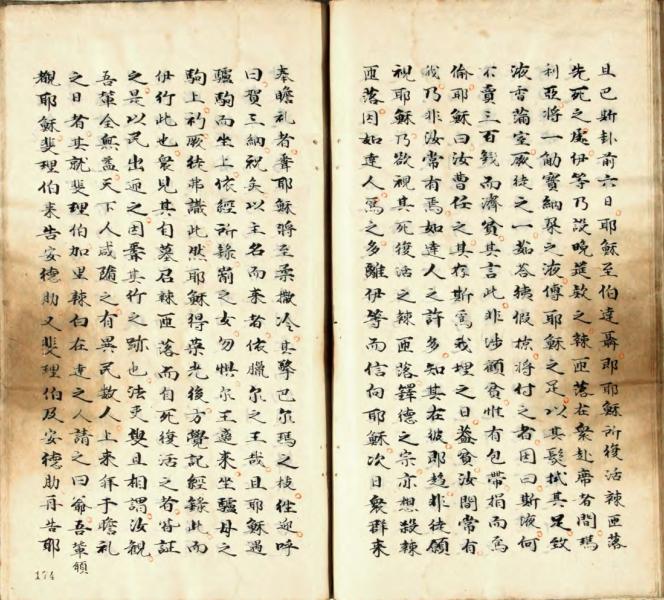 且巴斯卦前六日耶穌至伯達聶即耶穌所復活辣匝落
先死之處伊等乃設晚筵欵之辣匝落在衆赴席者間瑪
利亞將一觔寶納朶之液傅耶穌之足以其髮拭其足致
液香滿室厥徒之一茹荅斯假掠將付之者因曰斯液何
不賣三百錢而濟貧其言此非涉顧貧惟有包帶捐而爲
偷耶穌曰汝曹任之其存斯爲我埋之日葢貧汝間常有
我乃非汝常有焉如達人之許多知其在彼即趋非徒願
視耶穌乃欲視其死復活之辣匝落鐸德之宗亦想殺辣
匝落因如達人爲之多離伊等而信向耶穌次日衆群来
奉瞻礼者聞耶穌將至柔撒冷其擎巴尔瑪之枝徃迎呼
曰賀三納祝矣以主名而来者依臘尔之王哉且耶穌遇
驢駒而坐上依經所錄崙之女勿惧尔王來坐驢母之
駒上初厥徒弗識此然耶穌得荣光後方覺記經錄此而
伊行此也衆見其自墓召辣匝落而自死復活之者皆証
之是以民出迎之因聞其行之跡也法吏叟且相謂汝観
吾輩全無益天下人咸隨之有異民数人上来拜于瞻礼
之日者其就斐理伯加里辣白在達之人請之曰翁吾輩願
觀耶穌斐理伯来告安德助又斐理伯及安德助再告耶
174